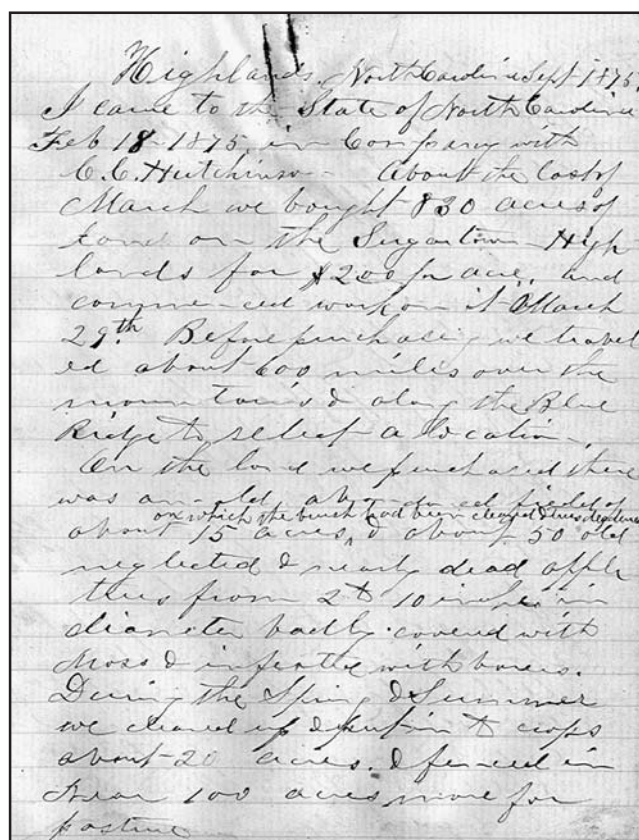 Highlands, North Carolina Sept 1875,
I came to the State of North Carolina
Feb 18-1875, in Company with
C.C. Hutchinson - About the last of
March we bought 830 acres of
land on the Sugartown High
lands for $200 pr acre, and
commenced work on it March
29th. Before purchasing we travel
ed about 600 miles over the
mountains & along the Blue
Ridge to select a location.
On the land we purchased there
was an old abandoned field of
on which the brush had been cleared & trees deadened
about 15 acres, & about 50 old
neglected & nearly dead apple
trees from 2 to 10 inches in
diameter badly covered with
Moss & infested with borers.
During the Spring & Summer
we cleared up & put in to crops
about 20 acres. & fenced in
near 100 acres more for
pasture